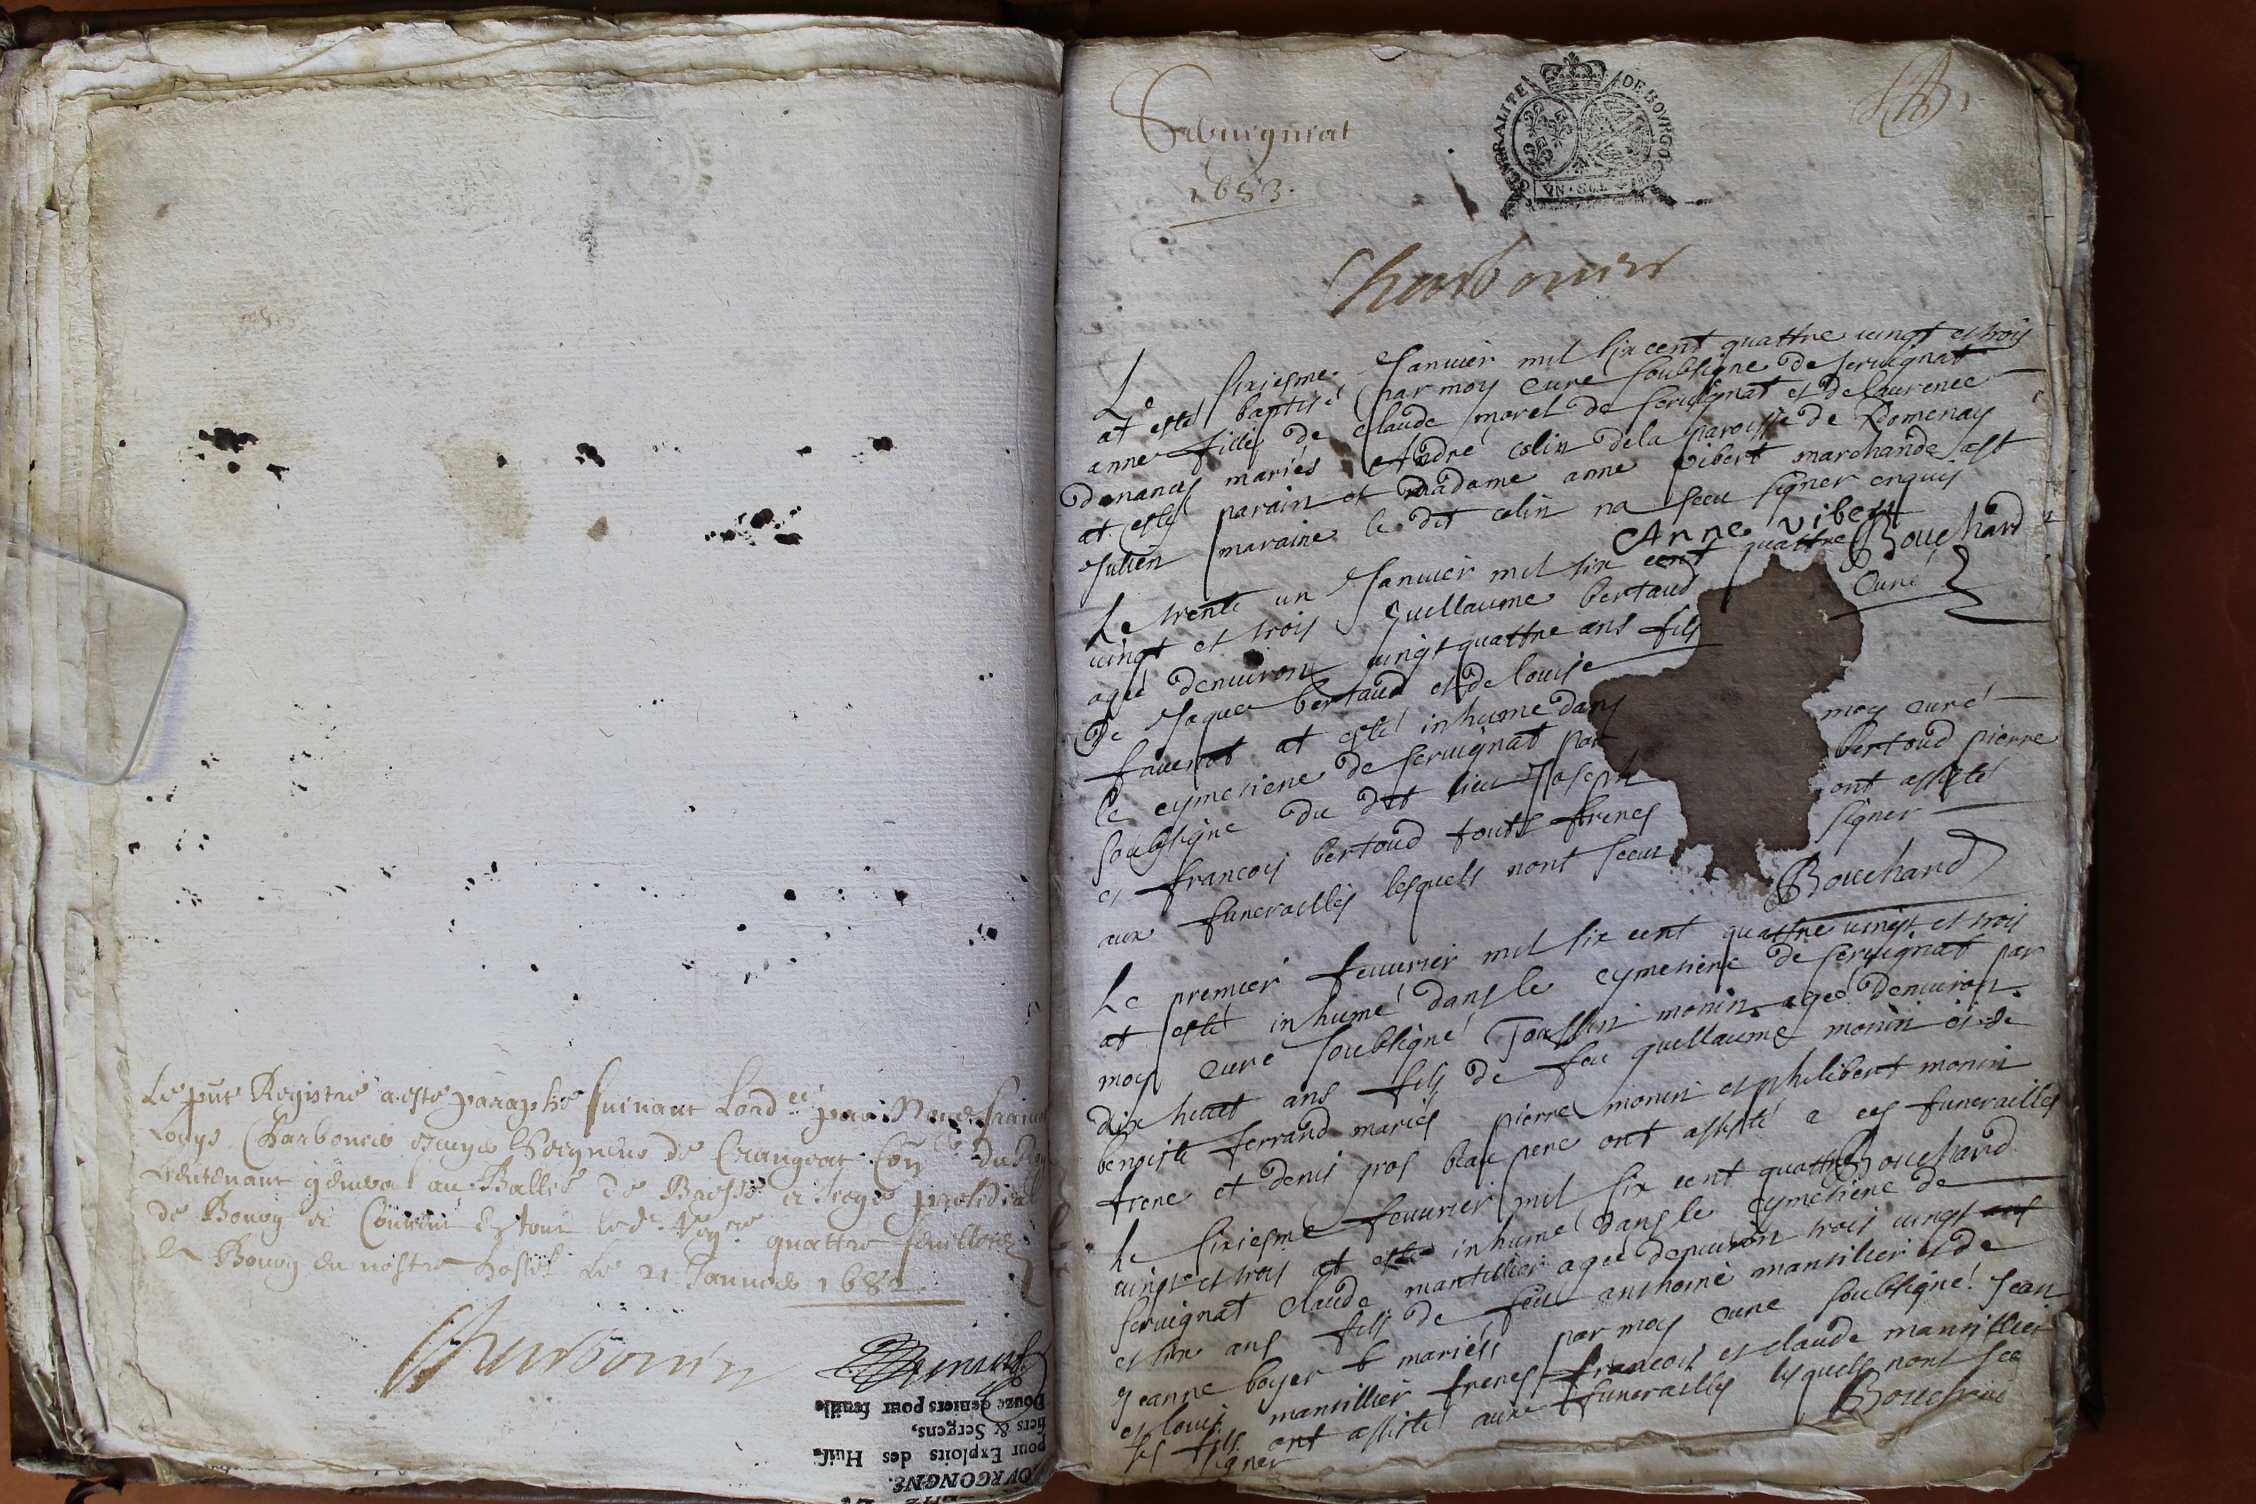 Le pnt Registre a esté paraphé suivant Lord.ce par Nous
Louys Charbonier Escuyer Seigneur de Crangeac Con.er du Roy
Lieutenant general au Balliage de Bresse et siege presidial
de Bourg et Contient en tout quattre feuilletz
A Bourg en nostre hostel Le 21 Janvier 1682
Charbonier
Douze deniers pour feuille
siers & Sergens,
pour Exploits des Huis-
BOVRGONGNE.
Servignat
1683.
GENERALITE DE BOVRGO
VN SOL
Charbonier
Le sixiesme Januier mil six cent quattre uingt et trois
at esté baptisé par moy Curé soubsigné de seruignat
anne fille de Claude morel de seruignat et de laurence
mariés André colin de la paroisse de Romenay
at esté parain et madame anne vibert marchande a st
Julien maraine le dit colin na sceu signer enquis
Anne vibert
Bouchard
Curé
Le trente un Januier mil six cent quattre
uingt et trois Guellaume bertaud
agé denuiron uingt quattre ans fils
De Jaques bertaud et de louise
at esté inhumé dans
le cymetiere de seruignat par moy curé
soubsigné du dit lieu Joseph bertoud pierre
et francois bertoud touts freres ont assisté
aux funerailles lesquels nont sceu signer
Bouchard
Le premier feuurier mil six cent quattre uingt et trois
at esté inhumé dans le cymetiere de seruignat par
moy Curé soubsigné Toussin monin agé denuiron
dix huict ans fils de feu guellaume monin et de
benoiste ferrand mariés pierre monin et philibert monin
frere et denis gros beau pere ont assisté a ces funerailles
Bouchard
Le sixiesme feuurier mil six cent quattre
uingt et trois at esté inhumé dans le cymetiere de
seruignat Claude mantillier agé denuiron trois uingt ans
et six ans fils de feu anthoine mantillier et de
Jeanne boyer mariés par moy curé soubsigné Jean
et louis mantillier freres francois et claude mantillier
ses fils ont assisté aux funerailles lesquels nont sceu
signer
Bouchard